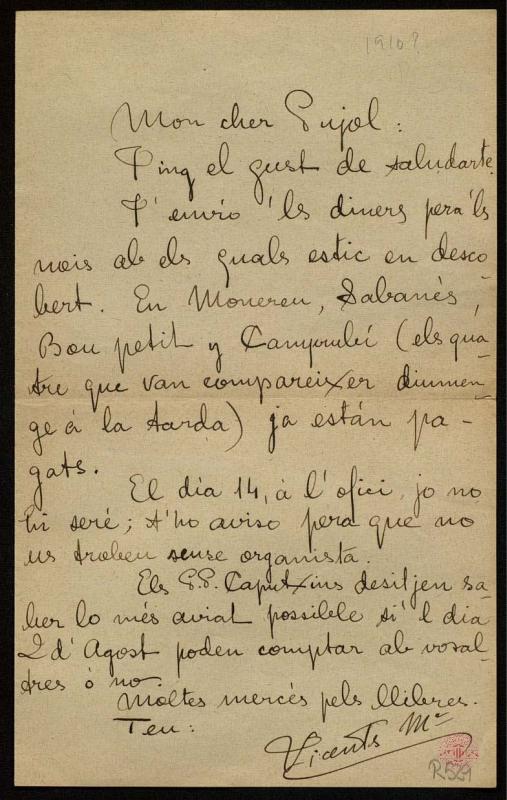 1910?
Mon cher Pujol:
Ting el gust de saludarte.
T'envío 'ls diners pera'ls
nois ab els quals estic en desco-
bert. En Monereu, Sabanés,
Bou petit y Camprubí (els qua-
tre que van compareixer diumen-
ge á la tarda) ja están pa-
gats.
El día 14, á l'ofici, jo no
hi seré; t'ho aviso pera que no
us trobeu sense organista.
Els P.P. Caputxins desitjen sa-
ber lo més aviat possible si'l dia
2 d'Agost poden comptar ab vosal-
tres ó no.
Moltes mercés pels llibres.
Teu:
Vicents Mª
R.529